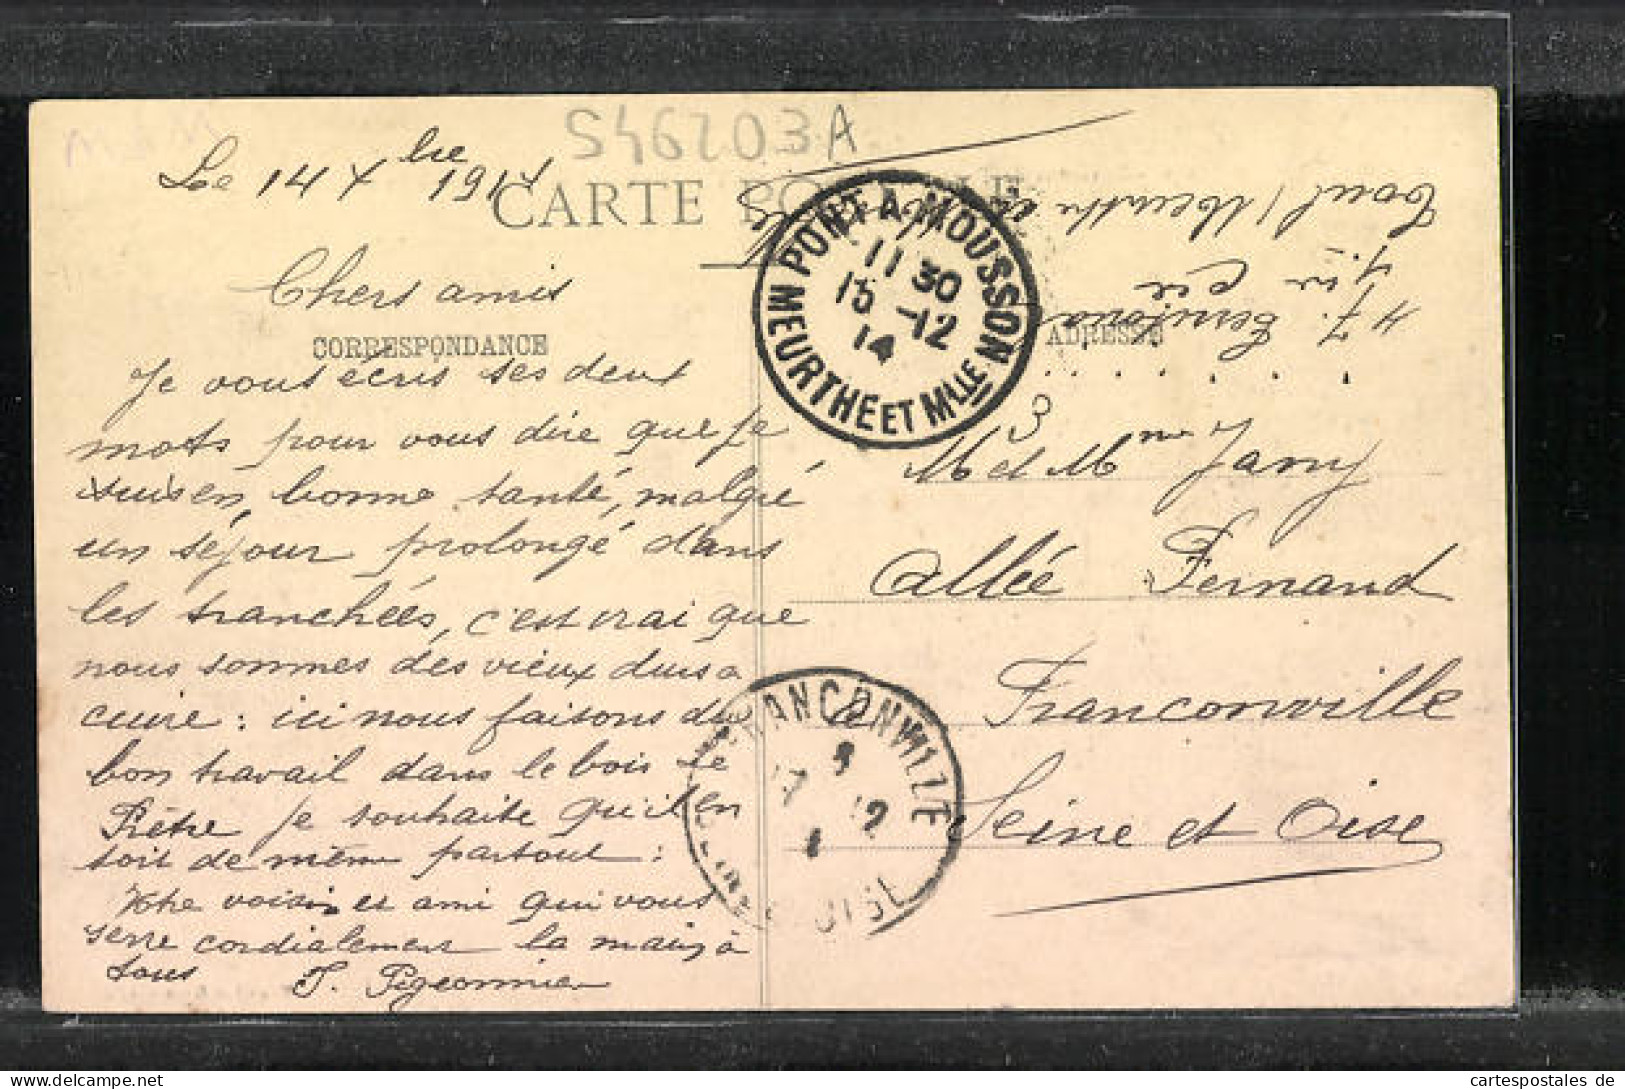 S46203A
Le 14 Xbre 1914
CARTE POSTALE
CORRESPONDANCE
Chers amis
Je vous écris ses deux
mots pour vous dire que je
suis en bonne santé, malgré
un séjour prolongé dans
les tranchées, c'est vrai que
nous sommes des vieux durs a
cuire : ici nous faisons du
bon travail dans le bois le
Prêtre je souhaite qu'il en
soit de même partout :
Votre voisin et ami qui vous
serre cordialement la main à
tous
J. Pigeonnier
ADRESSE
47. Territorial
1ère Cie
Toul (Meurthe et
PONT-A-MOUSSON
11 30
15 -12
14
MEURTHE ET MLLE
M et Mme Jany
Allée Fernand
Franconville
Seine et Oise
FRANCONVILLE
17 12
OISE
cartespostales de